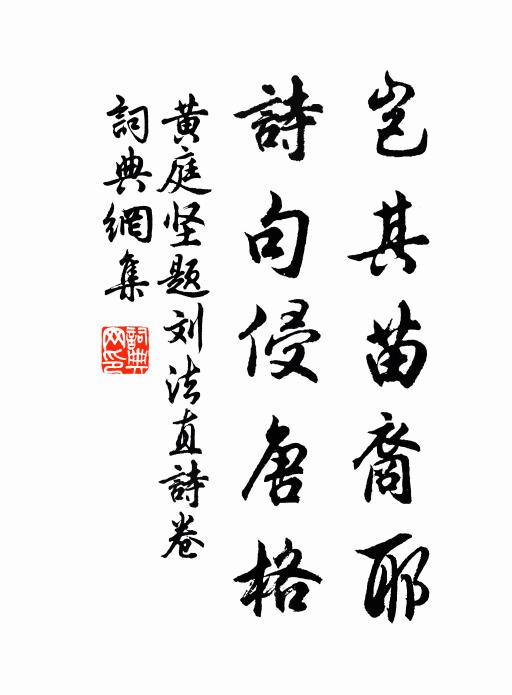 岂其苗裔耶
詩句侵唐格
黄庭坚题刘法直詩卷
詞典網集
詞典网印